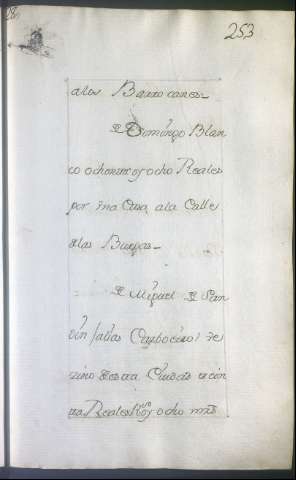 253
alos Barrocanes
De Domingo Blan
co ochenta y ocho Reales
por una Casa a la Calle
de las Burgas
De Miguel de San
vezino de esta Ciudad
Reales y ocho mrs